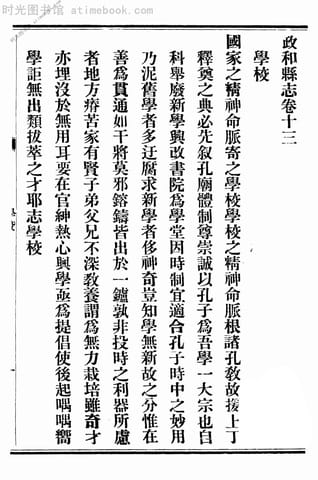 时光图书馆 www.atimebook.com
政和縣志卷十三
學校
國家之精神命脈寄之學校學校之精神命脈根諸孔敎故援上丁
釋奠之典必先敘孔廟體制尊崇誠以孔子爲吾學一大宗也自
科舉廢新學興改書院爲學堂因時制宜適合孔子時中之妙用
乃泥舊學者多迂腐求新學者侈神奇豈知學無新故之分惟在
善爲貫通如干將莫邪鎔鑄皆出於一鑪孰非投時之利器所慮
者地方瘠苦家有賢子弟父兄不深敎養謂爲無力栽培雖奇才
亦埋沒於無用耳要在官紳熱心興學亟爲提倡使後起喁喁嚮
學詎無出類拔萃之才耶志學校